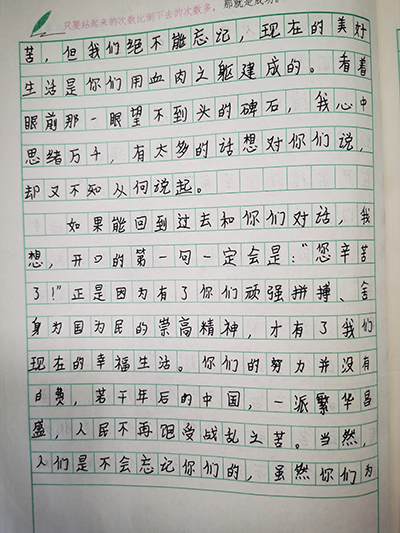 那就是成功。
只要站起来的次数比倒下去的次数多，
苦，但我们绝不能忘记，现在的美好
生活是你们用血肉之躯建成的。看着
眼前那一眼望不到头的碑石，我心中
思绪万千，有太多的话想对你们说，
却又不知从何说起。
如果能回到过去和你们对话，我
想，开口的第一句一定会是："您辛苦
了！"正是因为有了你们顽强拼搏、舍
身为国为民的崇高精神，才有了我们
现在的幸福生活。你们的努力并没有
白费，若干年后的中国，一派繁华昌
盛，人民不再饱受战乱之苦。当然，
人们是不会忘记你们的，虽然你们为